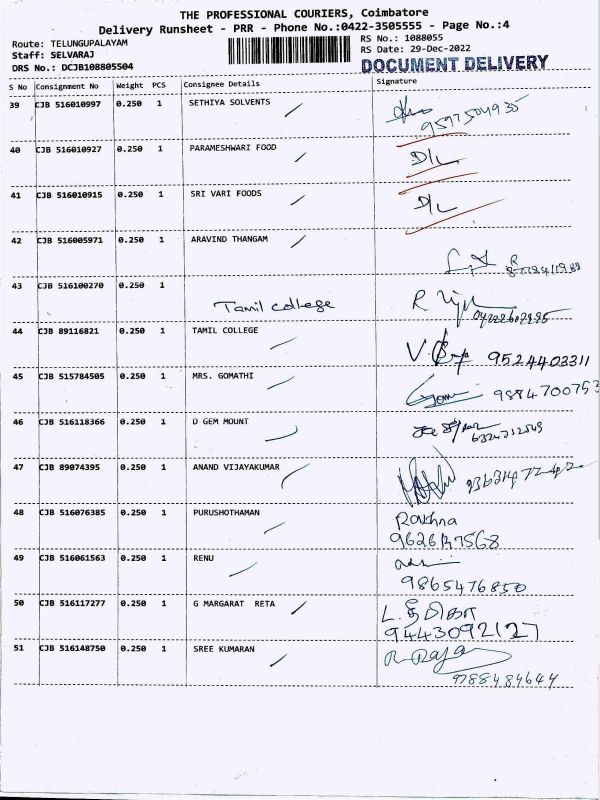 THE PROFESSIONAL COURIERS, Coimbatore
Delivery Runsheet - PRR - Phone No.:0422-3505555 - Page No.:4
Route: TELUNGUPALAYAM
RS No.: 1088055
Staff: SELVARAJ
RS Date: 29-Dec-2022
DRS No.: DCJB108805504
DOCUMENT DELIVERY
S No Consignment No Weight PCS Consignee Details Signature
39 CJB 516010997 0.250 1 SETHIYA SOLVENTS
9597504935
40 CJB 516010927 0.250 1 PARAMESHWARI FOOD
D/L
41 CJB 516010915 0.250 1 SRI VARI FOODS
D/L
42 CJB 516005971 0.250 1 ARAVIND THANGAM
43 CJB 516100270 0.250 1
Tamil college
44 CJB 89116821 0.250 1 TAMIL COLLEGE
9524403311
45 CJB 515784505 0.250 1 MRS. GOMATHI
9884700753
46 CJB 516118366 0.250 1 D GEM MOUNT
47 CJB 89074395 0.250 1 ANAND VIJAYAKUMAR
48 CJB 516076385 0.250 1 PURUSHOTHAMAN
9626147568
49 CJB 516061563 0.250 1 RENU
9865476850
50 CJB 516117277 0.250 1 G MARGARAT RETA
9443092127
51 CJB 516148750 0.250 1 SREE KUMARAN
R. Raja
9788484644